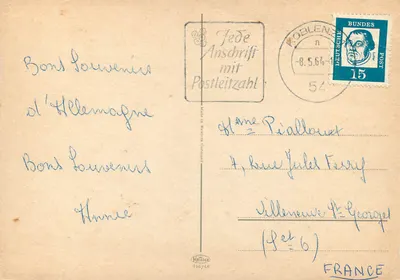 Bons Souvenirs
d'Allemagne
Bons Souvenirs
Annie
Jede
Anschrift
mit
Postleitzahl
KOBLENZ
n
-8.5.64-1
54
DEUTSCHE BUNDESPOST
15
Mme Piallouet
4, Rue Jules Ferry
Villeneuve St Georges
(S et O)
FRANCE